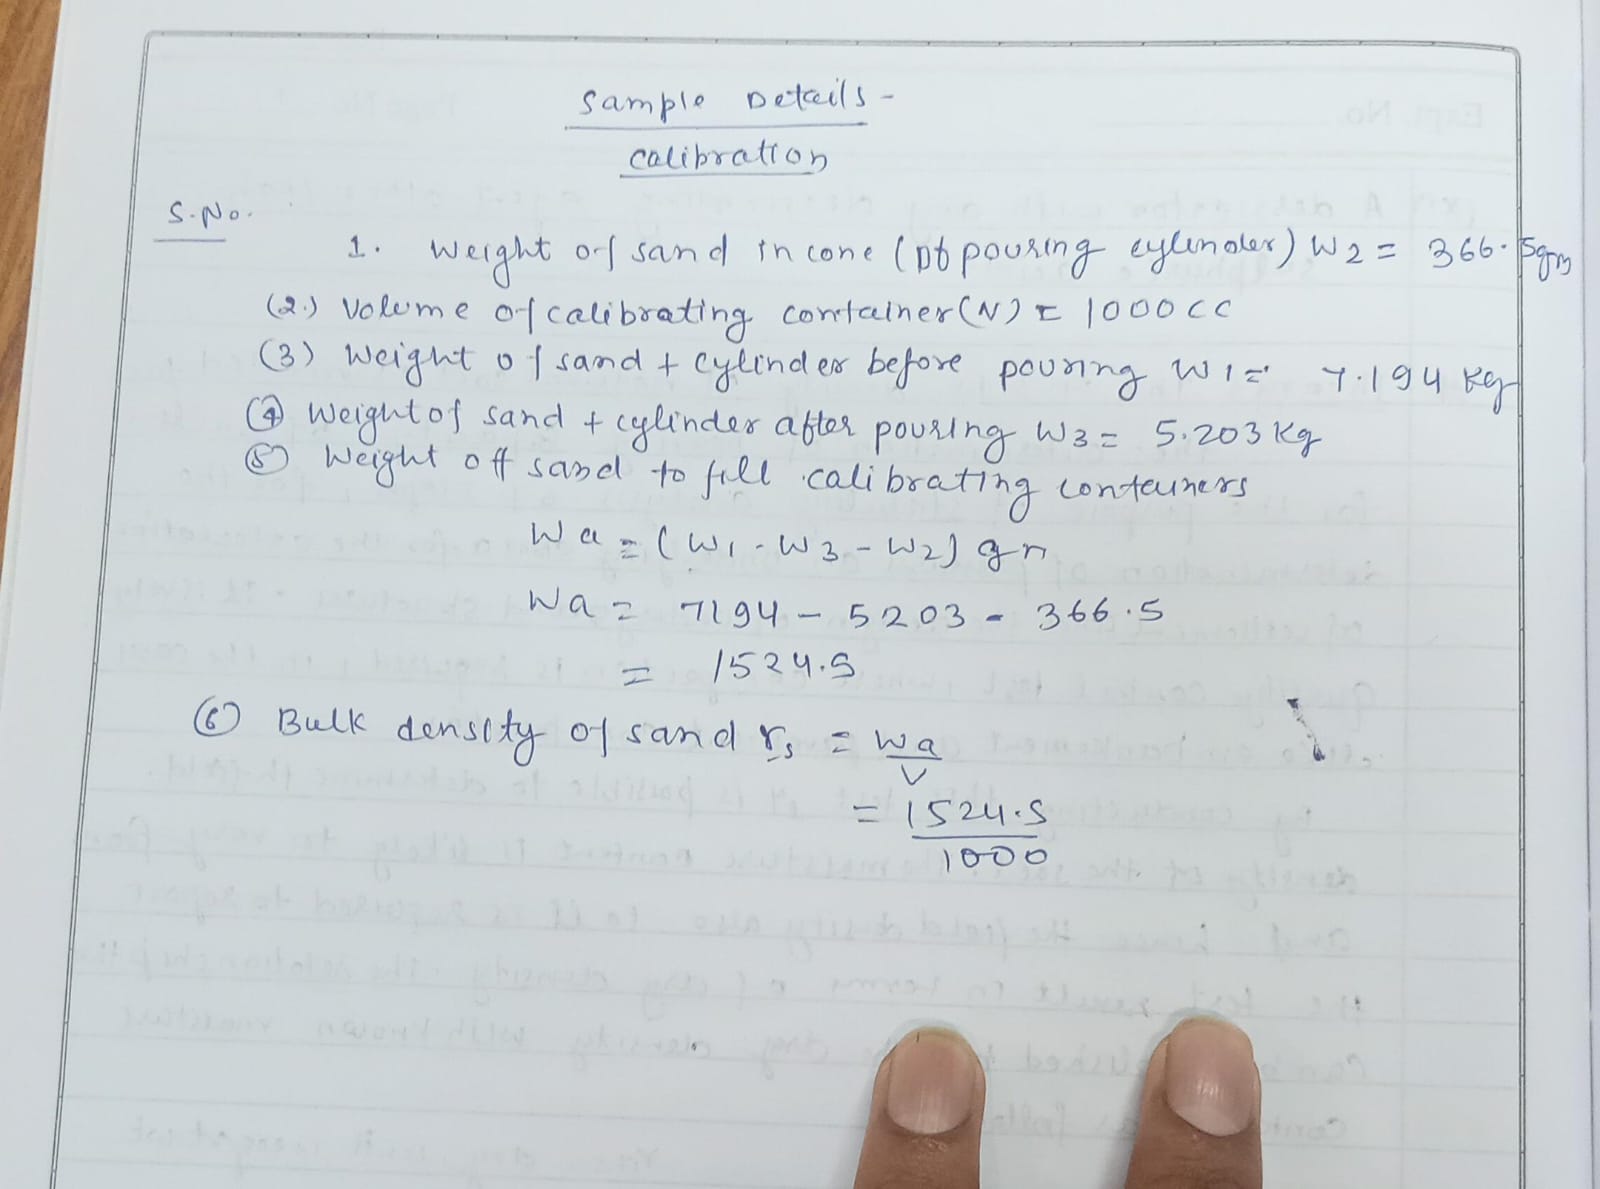 Sample Details -
calibration
S.No.
1. Weight of sand in cone (Of pouring cylinder) W2 = 366.5gm
(2.) Volume of calibrating container (V) = 1000 cc
(3) Weight of sand + cylinder before pouring W1 = 7.194 kg
(4) Weight of sand + cylinder after pouring W3 = 5.203 kg
(5) Weight off sand to fill calibrating containers
Wa = (W1 - W3 - W2) gn
Wa = 7194 - 5203 - 366.5
= 1524.5
(6) Bulk density of sand rs = Wa
V
= 1524.5
1000